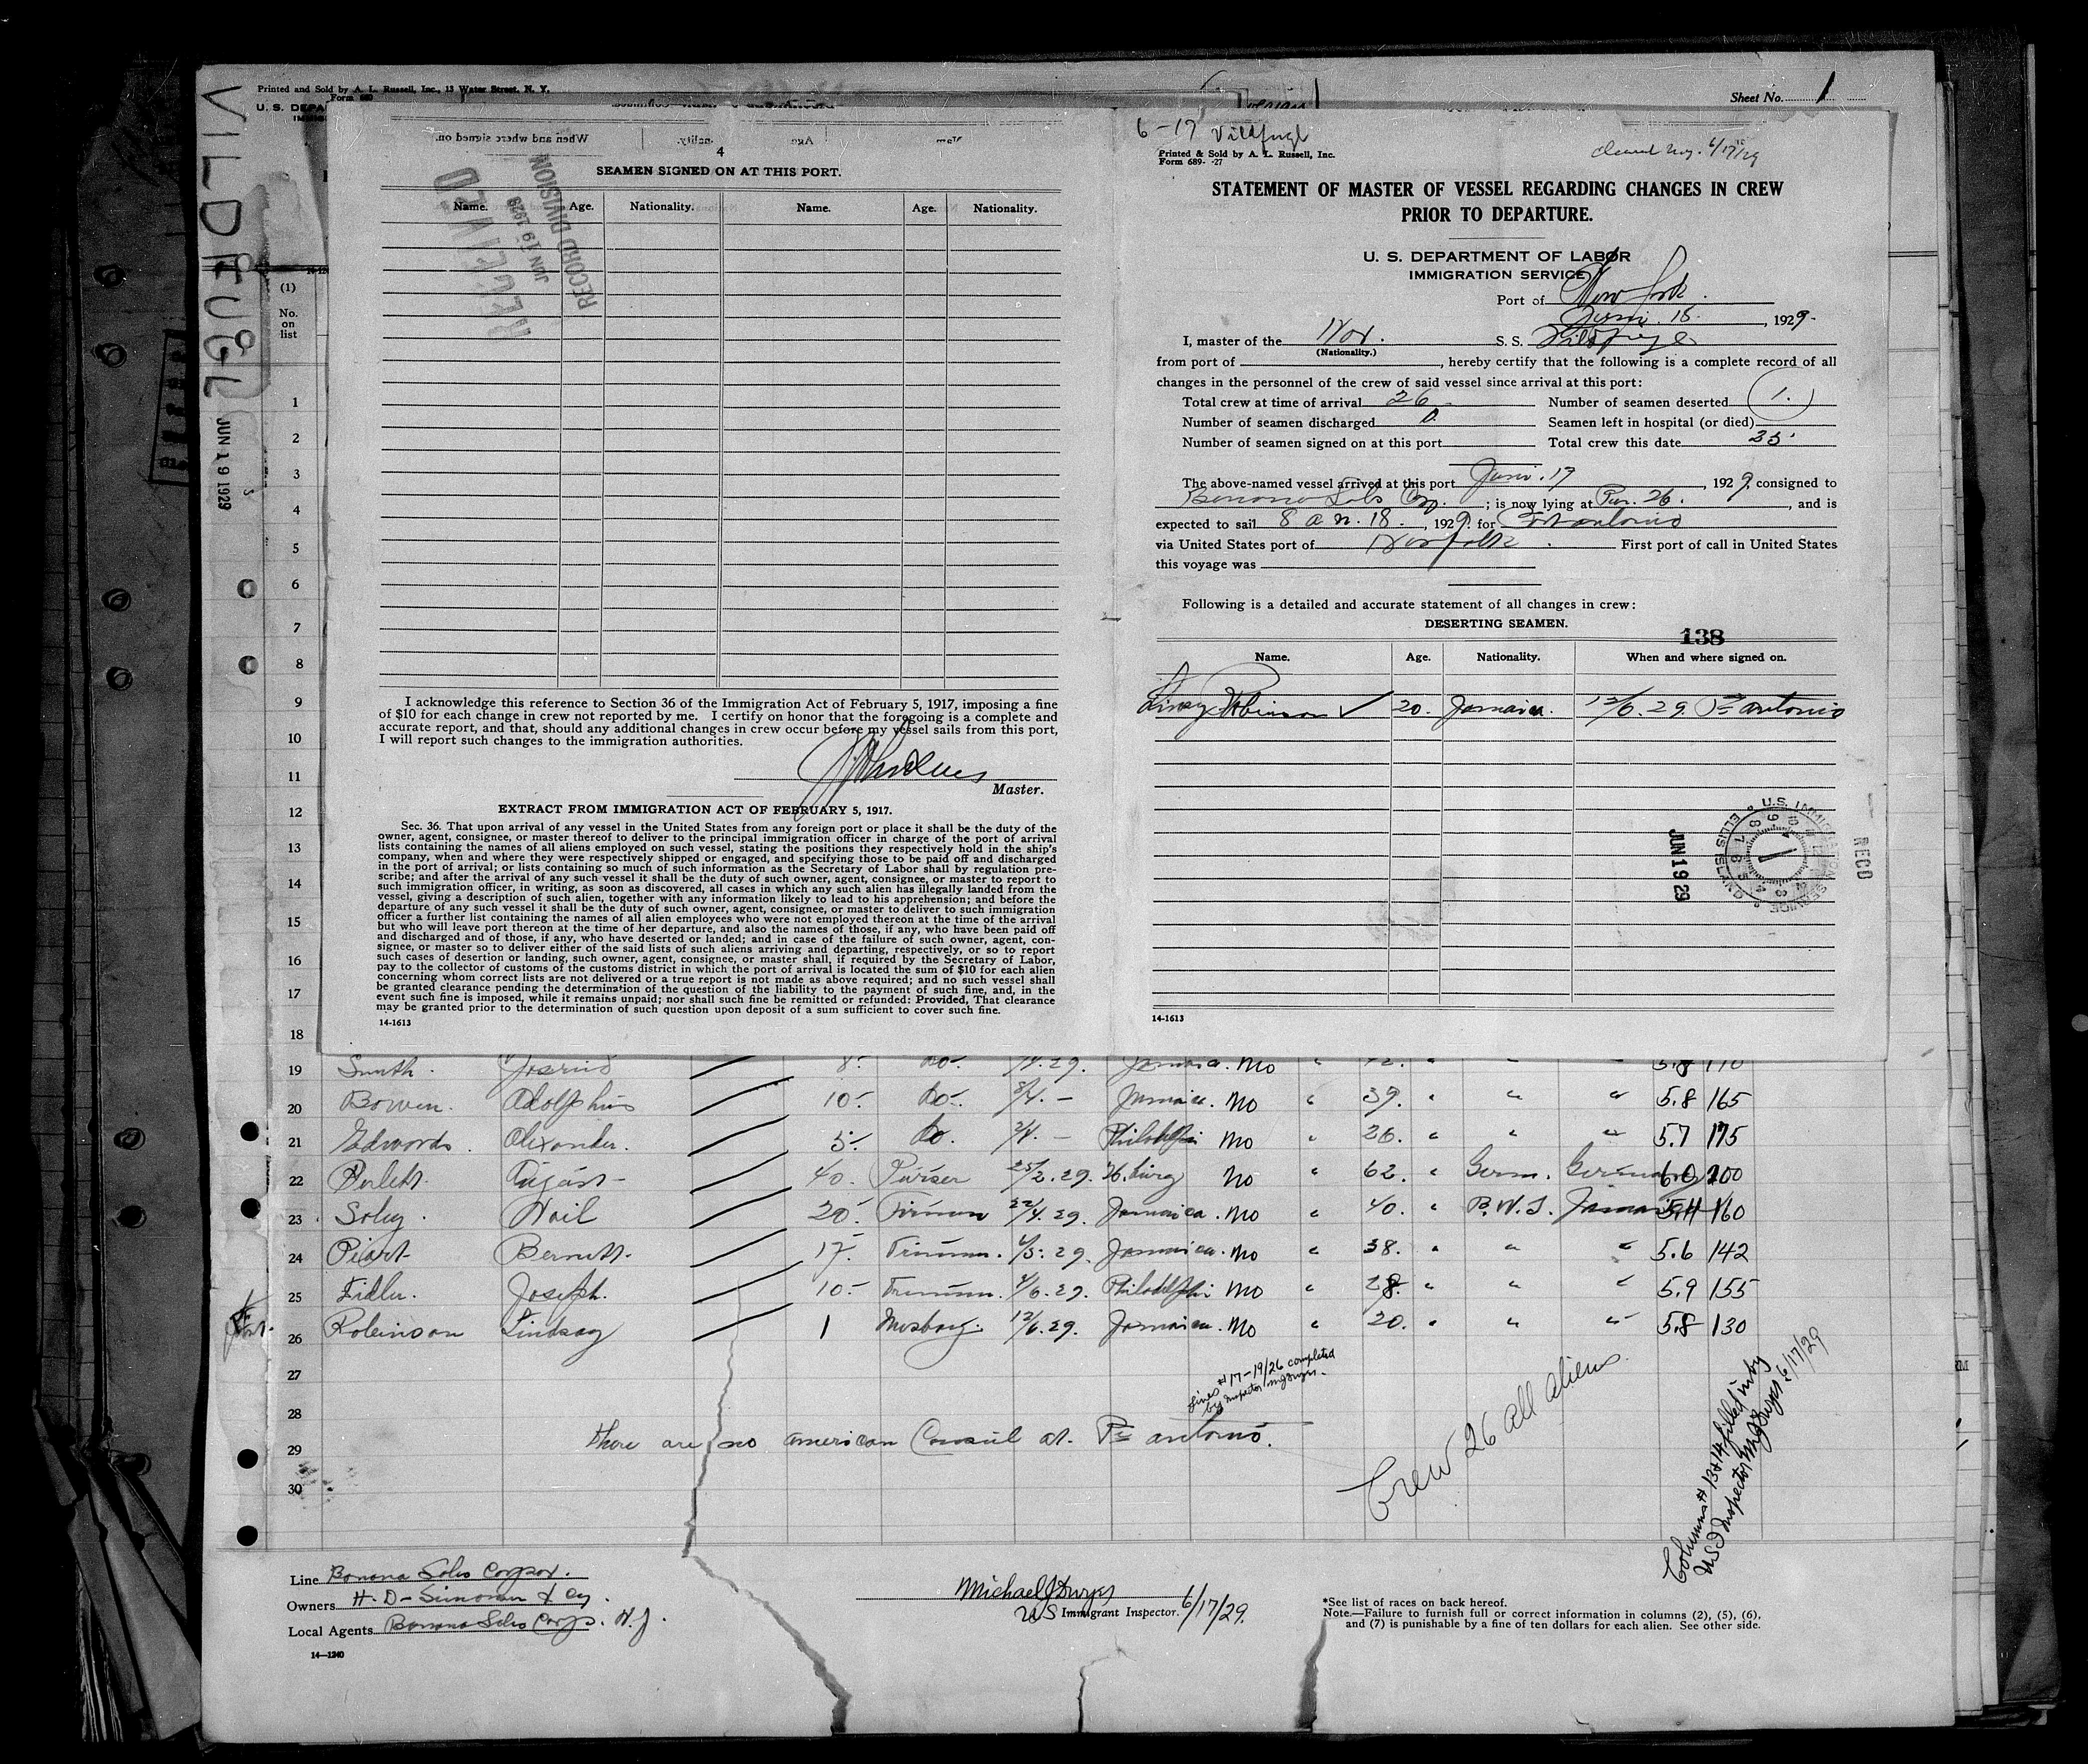 Printed and Sold by A. L. Russell, Inc., 13 Water Street, N. Y.
Form 680
U. S. DEPA
Sheet No. 1
VILDFUGL
JUN 19 1929
4
SEAMEN SIGNED ON AT THIS PORT.
Name. Age. Nationality. Name. Age. Nationality.
RECEIVED
JUN 19 1929
RECORD DIVISION
I acknowledge this reference to Section 36 of the Immigration Act of February 5, 1917, imposing a fine
of $10 for each change in crew not reported by me. I certify on honor that the foregoing is a complete and
accurate report, and that, should any additional changes in crew occur before my vessel sails from this port,
I will report such changes to the immigration authorities.
Master.
EXTRACT FROM IMMIGRATION ACT OF FEBRUARY 5, 1917.
Sec. 36. That upon arrival of any vessel in the United States from any foreign port or place it shall be the duty of the
owner, agent, consignee, or master thereof to deliver to the principal immigration officer in charge of the port of arrival
lists containing the names of all aliens employed on such vessel, stating the positions they respectively hold in the ship's
company, when and where they were respectively shipped or engaged, and specifying those to be paid off and discharged
in the port of arrival; or lists containing so much of such information as the Secretary of Labor shall by regulation pre-
scribe; and after the arrival of any such vessel it shall be the duty of such owner, agent, consignee, or master to report to
such immigration officer, in writing, as soon as discovered, all cases in which any such alien has illegally landed from the
vessel, giving a description of such alien, together with any information likely to lead to his apprehension; and before the
departure of any such vessel it shall be the duty of such owner, agent, consignee, or master to deliver to such immigration
officer a further list containing the names of all alien employees who were not employed thereon at the time of the arrival
but who will leave port thereon at the time of her departure, and also the names of those, if any, who have been paid off
and discharged and of those, if any, who have deserted or landed; and in case of the failure of such owner, agent, con-
signee, or master so to deliver either of the said lists of such aliens arriving and departing, respectively, or so to report
such cases of desertion or landing, such owner, agent, consignee, or master shall, if required by the Secretary of Labor,
pay to the collector of customs of the customs district in which the port of arrival is located the sum of $10 for each alien
concerning whom correct lists are not delivered or a true report is not made as above required; and no such vessel shall
be granted clearance pending the determination of the question of the liability to the payment of such fine, and, in the
event such fine is imposed, while it remains unpaid; nor shall such fine be remitted or refunded: Provided, That clearance
may be granted prior to the determination of such question upon deposit of a sum sufficient to cover such fine.
14-1613
6-17 Vildfugl
6/17/29
Printed & Sold by A. L. Russell, Inc.
Form 689- -27
STATEMENT OF MASTER OF VESSEL REGARDING CHANGES IN CREW
PRIOR TO DEPARTURE.
U. S. DEPARTMENT OF LABOR
IMMIGRATION SERVICE
Port of New York.
Juni. 18. , 1929.
I, master of the Nor. S. S. Vildfugl
(Nationality.)
from port of , hereby certify that the following is a complete record of all
changes in the personnel of the crew of said vessel since arrival at this port:
Total crew at time of arrival 26 Number of seamen deserted 1.
Number of seamen discharged 0. Seamen left in hospital (or died)
Number of seamen signed on at this port Total crew this date 25.
The above-named vessel arrived at this port Juni. 17 , 1929, consigned to
Banana Sales Corp. ; is now lying at Pier. 26. , and is
expected to sail 8 am. 18. , 1929. for Port antonio
via United States port of Norfolk. First port of call in United States
this voyage was
Following is a detailed and accurate statement of all changes in crew:
DESERTING SEAMEN.
138
Name. Age. Nationality. When and where signed on.
Robinson ✓ 20. Jamaica. 12/6. 29. Pt antonio
U.S. IMMIGRATION SERVICE ELLIS ISLAND
JUN 19 29
RECD
14-1613
(1)
No.
on
list
1
2
3
4
5
6
7
8
9
10
11
12
13
14
15
16
17
18
19 Smith. 8. do. Jamaica. No 5.8 170
20 Bowen. Adolphus 10. do. 3/4. - Jamaica. No " 39. " " " 5.8 165
21 Edwards. Alexander. 5. do. 2/4. - Philadelphi No " 26. " " " 5.7 175
22 40. Purser 25/2. 29. H.burg No " 62. " Germ. Germany 6.0 200
23 Soley. Nail 20. Fireman 22/4. 29. Jamaica. No " 40. " B.W.I. Jamaica 5.4 160
24 Piart 17. Trimm. 4/5. 29. Jamaica. No " 38. " " " 5.6 142
25 Fidler. Joseph. 10. Trimm. 4/6. 29. Philadelphi No " 28. " " " 5.9 155
26 Robinson Lindsay 1 Messboy. 12/6. 29. Jamaica. No " 20. " " " 5.8 130
27
28
29
30
Lines #17-19/26 completed
by Inspector MJ Dwyer.
there are no american Consul at Pt antonio.
Crew 26 all aliens.
Columns # 13 & 14 filled in by
US I Inspector MJ Dwyer 6/17/29
Line Banana Sales Corpor.
Owners H. D-
Local Agents Banana Sales Corp. N.Y.
14—1240
Michael J Dwyer
US Immigrant Inspector. 6/17/29.
*See list of races on back hereof.
Note.—Failure to furnish full or correct information in columns (2), (5), (6),
and (7) is punishable by a fine of ten dollars for each alien. See other side.